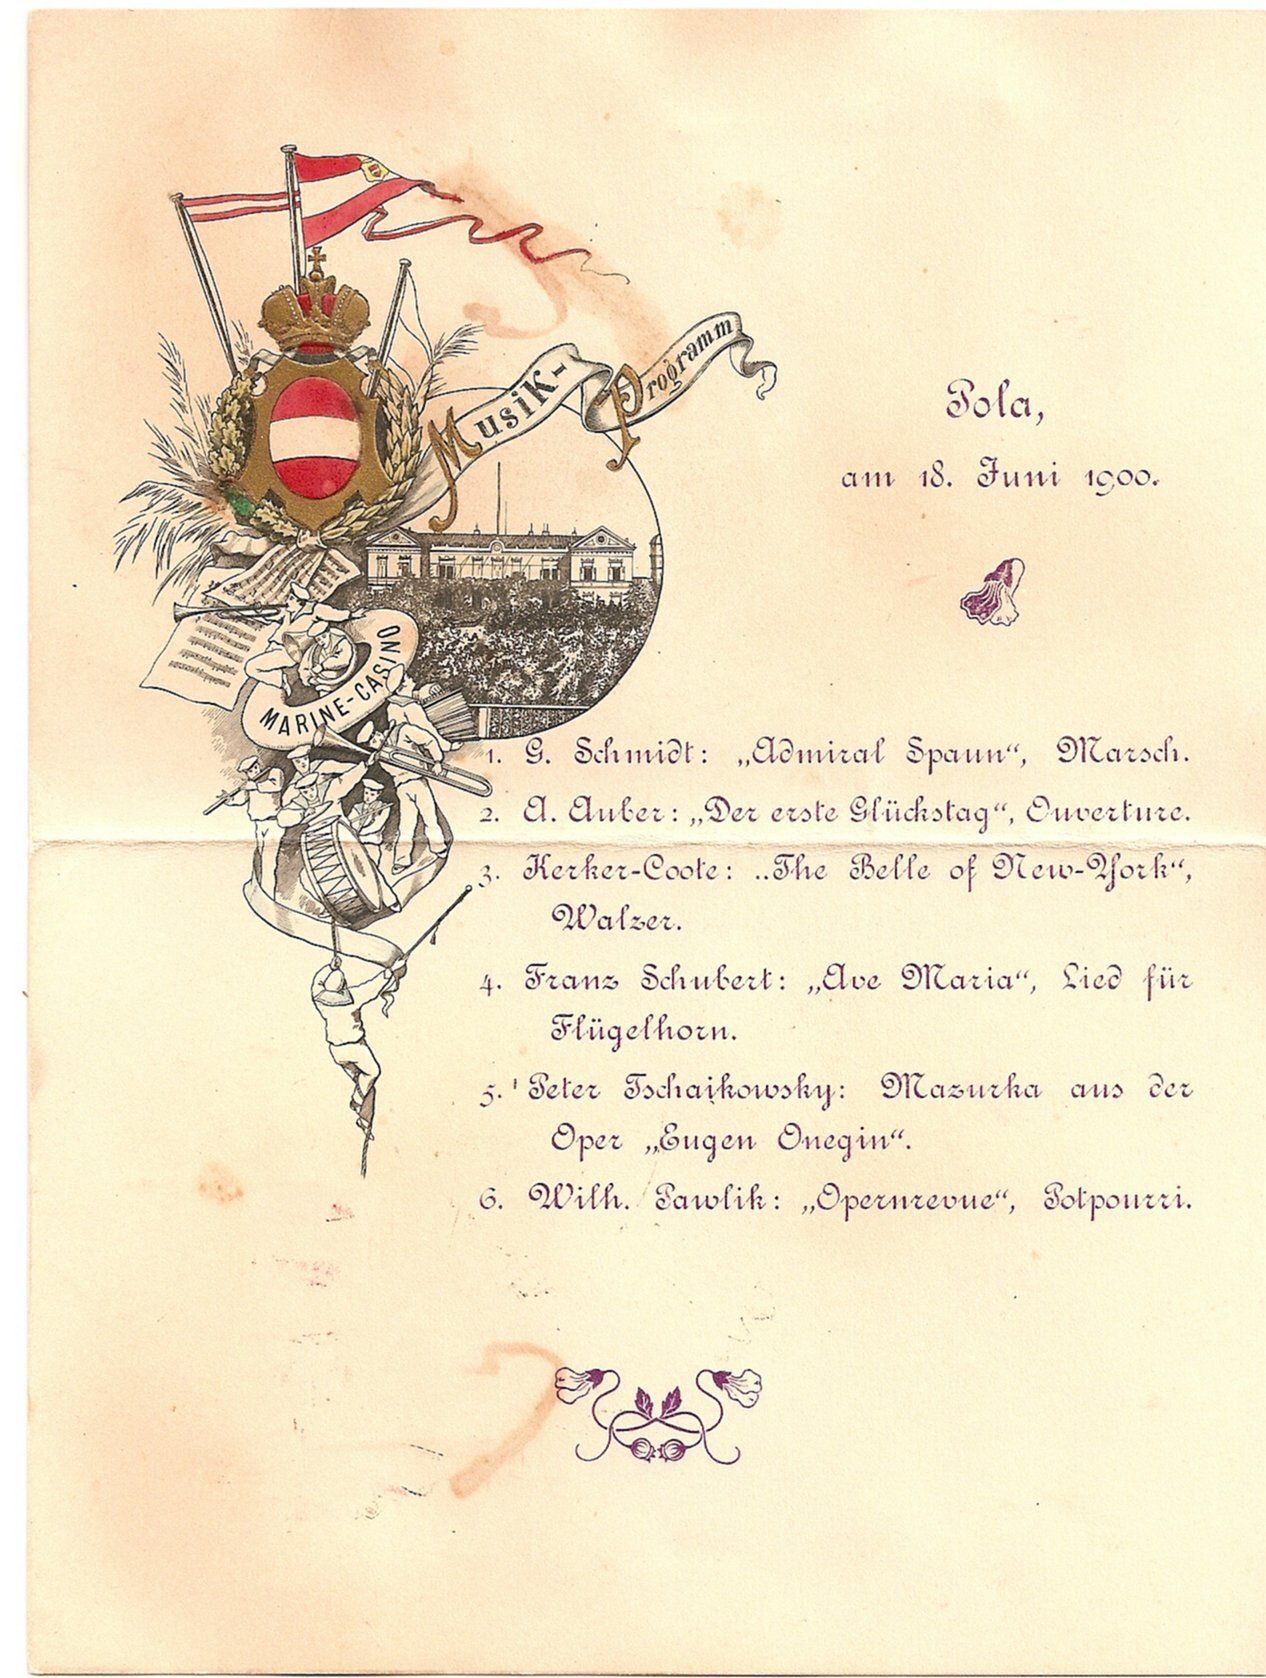 Musik-Programm
Pola,
am 18. Juni 1900.
MARINE-CASINO
1. G. Schmidt: „Admiral Spaun“, Marsch.
2. A. Auber: „Der erste Glückstag“, Ouverture.
3. Kerker-Coote: „The Belle of New-York“,
Walzer.
4. Franz Schubert: „Ave Maria“, Lied für
Flügelhorn.
5. Peter Tschaikowsky: Mazurka aus der
Oper „Eugen Onegin“.
6. Wilh. Pawlik: „Opernrevue“, Potpourri.